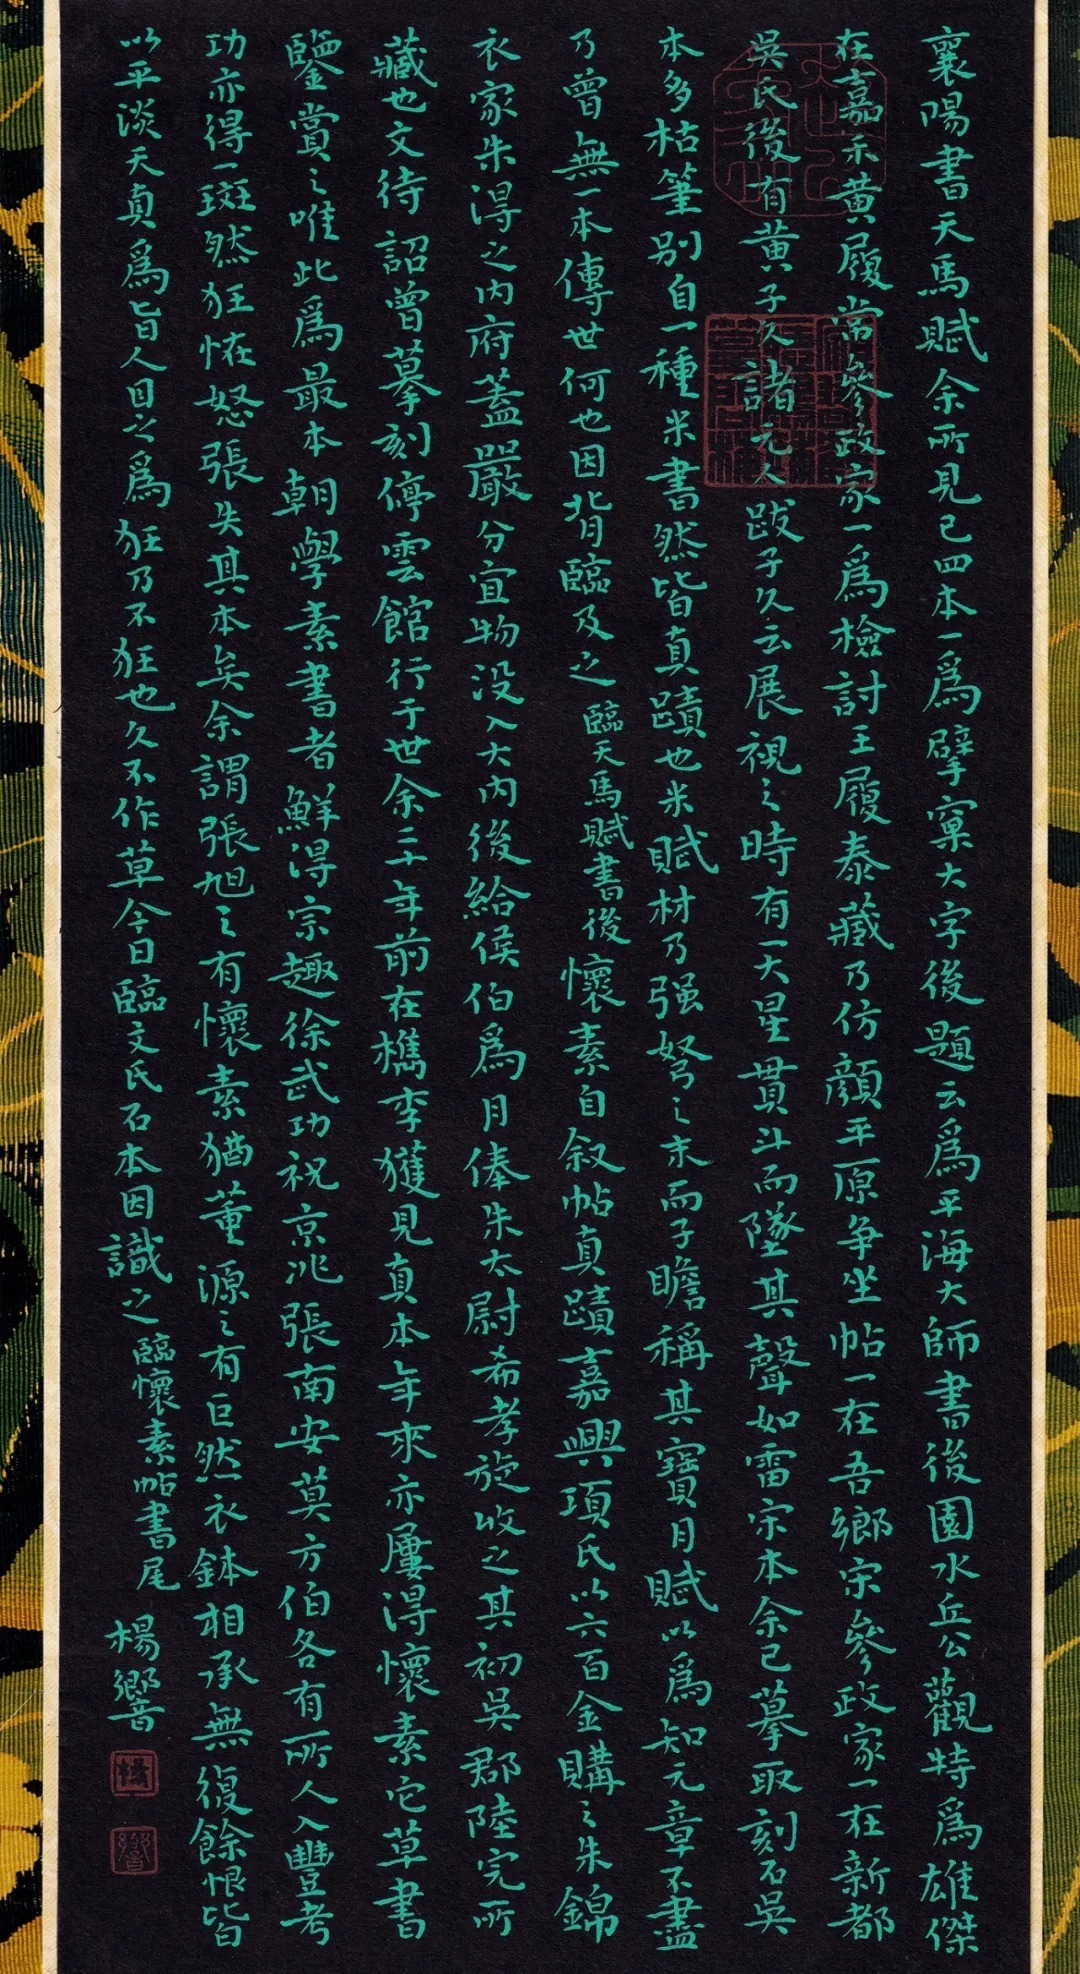 襄陽書天馬賦余所見已四本一爲擘窠大字後題云爲平海大師書後園水丘公觀特爲雄傑
在嘉禾黃履常參政家一爲檢討王履泰藏乃仿顔平原争坐帖一在吾鄉宋參政家一在新都
吳氏後有黃子久諸元人跋子久云展視之時有一大星貫斗而墜其聲如雷宋本余已摹取刻石吳
本多枯筆别自一種米書然皆真蹟也米賦材乃强弩之末而子瞻稱其寶月賦以爲知元章不盡
乃曾無一本傳世何也因背臨及之 臨天馬賦書後 懷素自叙帖真蹟嘉興項氏以六百金購之朱錦
衣家朱得之内府蓋嚴分宜物没入大内後給侯伯爲月俸朱太尉希孝旋收之其初吳郡陸完所
藏也文待詔曾摹刻停雲館行于世余二十年前在檇李獲見真本年來亦屢得懷素它草書
鑒賞之唯此爲最本朝學素書者鮮得宗趣徐武功祝京兆張南安莫方伯各有所人入豐考
功亦得一斑然狂怪怒張失其本矣余謂張旭之有懷素猶董源之有巨然衣鉢相承無復餘恨皆
以平淡天真爲旨人目之爲狂乃不狂也久不作草今日臨文氏石本因識之 臨懷素帖書尾 楊響